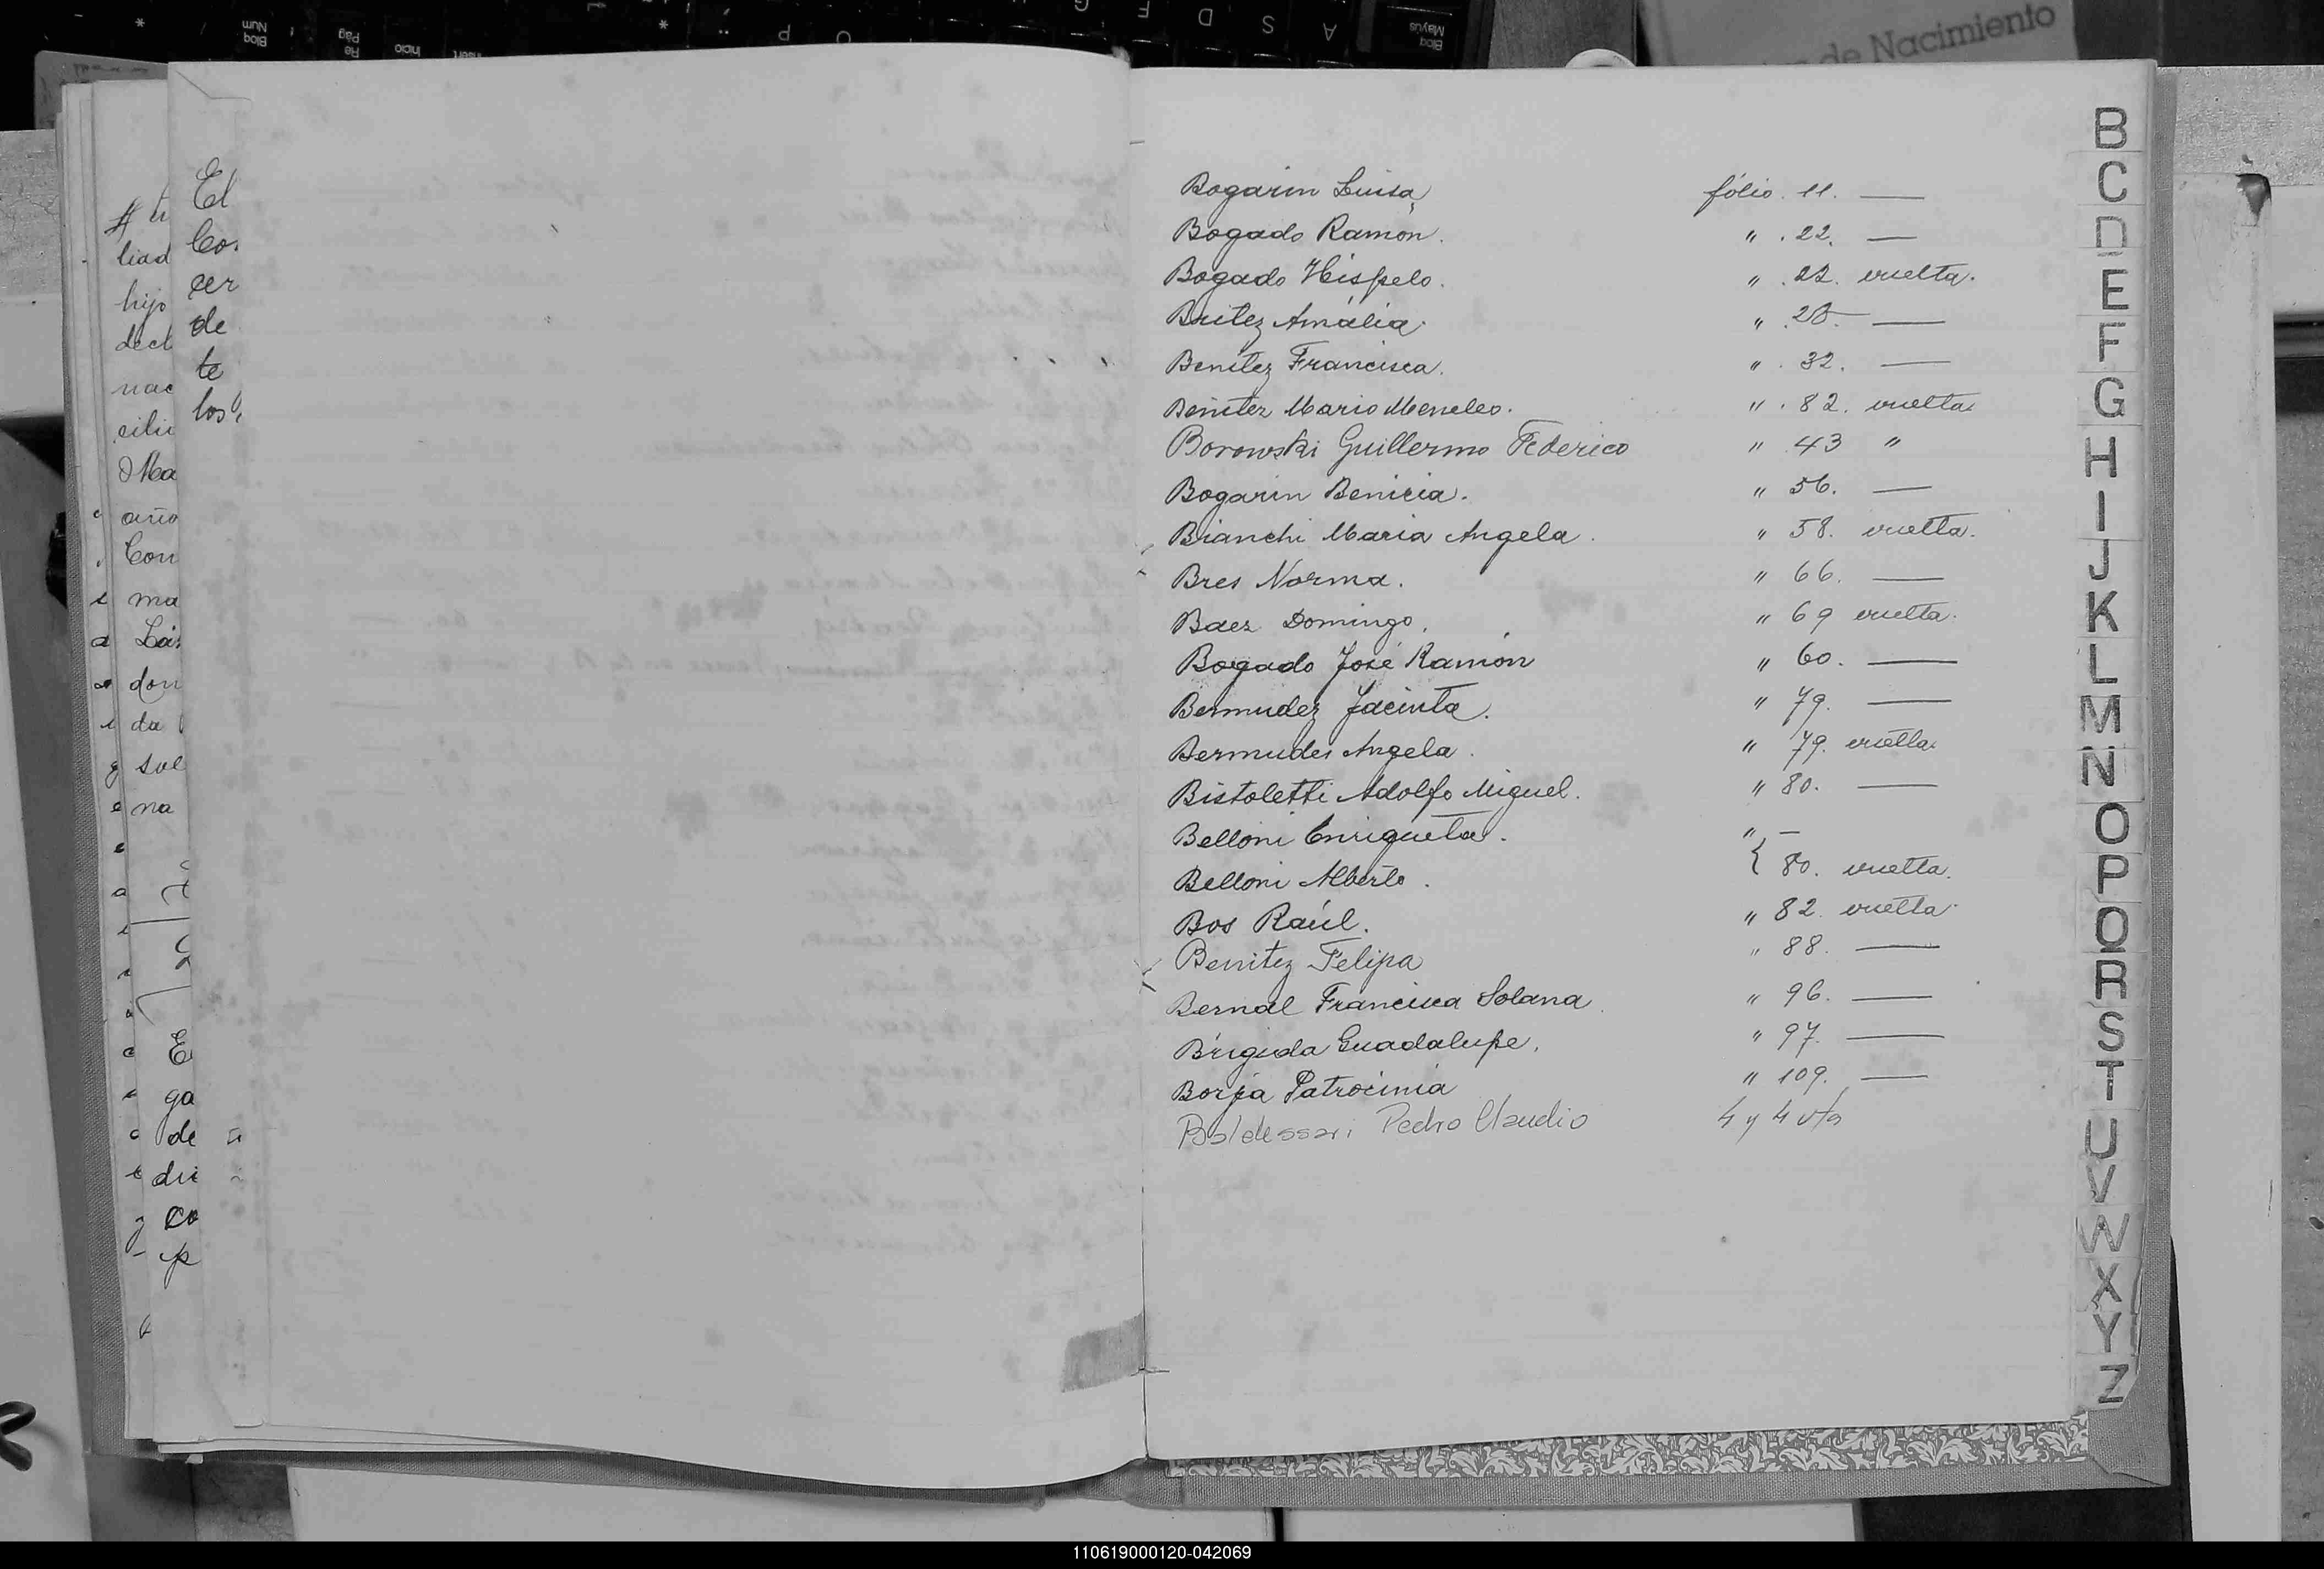 de Nacimiento
El
Co
cer
de
te
los
liad
hijo
decl
nac
cili
Ma
año
Con
ma
don
da
sol
na
E
ga
de
di
co
p
Bogarin Luisa fólio. 11. —
Bogado Ramón. " . 22. —
Bogado Hispelo. " . 22. vuelta.
Britez Amália. " . 28. —
Benitez Francisca. " . 32. —
Benitez Mario Meneleo. " . 82. vuelta
Borowski Guillermo Federico " 43 "
Bogarin Benicia. " 56. —
Bianchi Maria Angela. " 58. vuelta.
Bres Norma. " 66. —
Baez Domingo. " 69 vuelta.
Bogado José Ramón " 60. —
Bermudez Jacinta. " 79. —
Bermudes Angela. " 79. vuelta.
Bistoletti Adolfo Miguel. " 80. —
Belloni Enriqueta. " —
Belloni Alberto. { 80. vuelta.
Bos Raúl. " 82. vuelta.
Benitez Felipa " 88. —
Bernal Francisca Solana. " 96. —
Brígida Guadalupe. " 97. —
Borja Patrocinia " 109. —
Baldessari Pedro Claudio 4 y 4 vta
B
C
D
E
F
G
H
I
J
K
L
M
N
O
P
Q
R
S
T
U
V
W
X
Y
Z
110619000120-042069